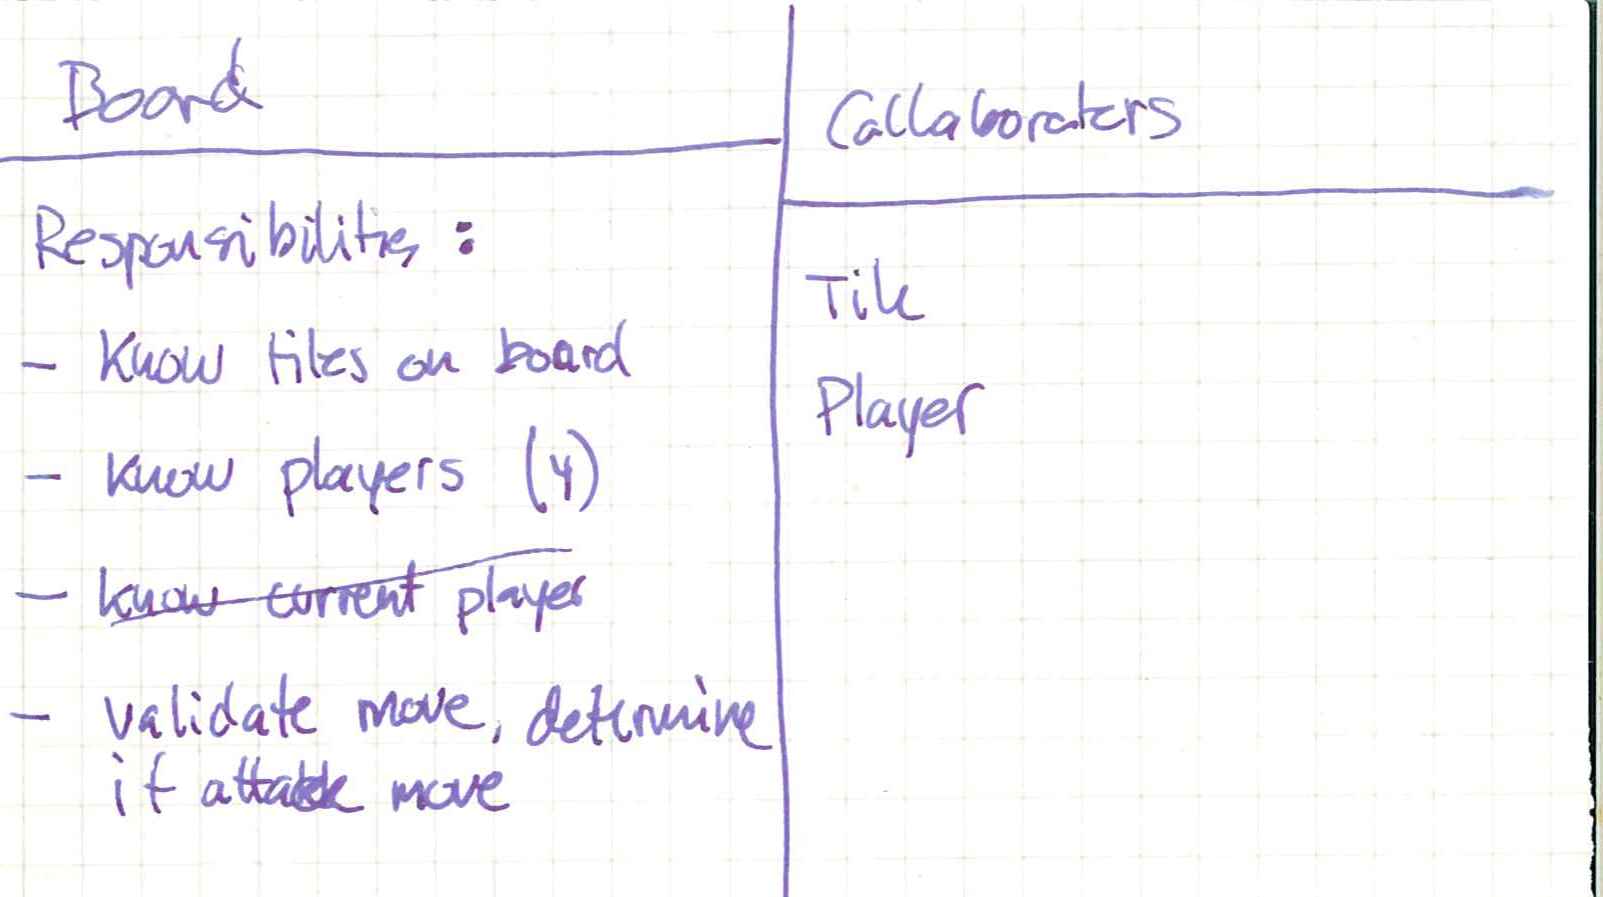 Board
Responsibilities :
- Know tiles on board
- know players (4)
- know current player
- validate move, determine
if attack move
Collaboraters
Tile
Player